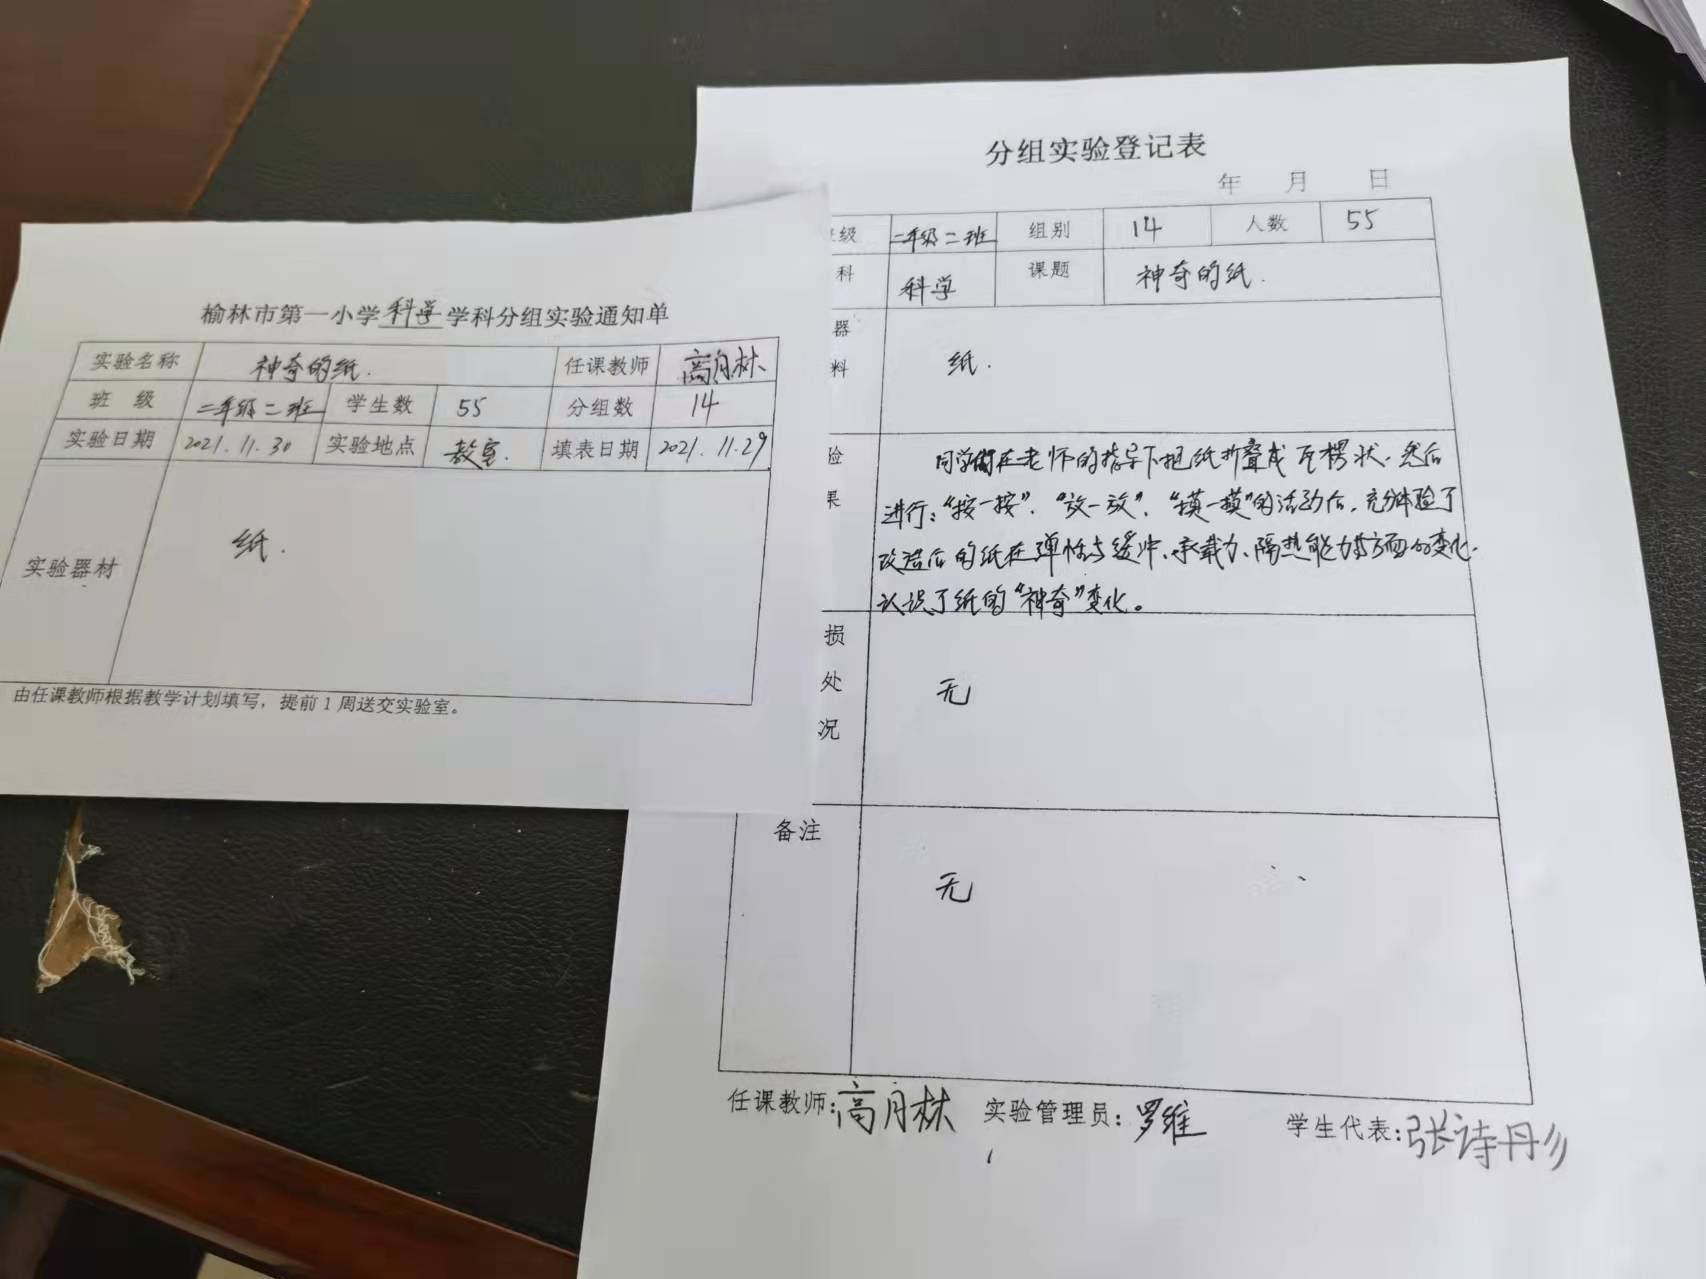 榆林市第一小学科学学科分组实验通知单
实验名称 神奇的纸. 任课教师 高月林
班 级 二年级二班 学生数 55 分组数 14
实验日期 2021.11.30 实验地点 教室. 填表日期 2021.11.29
实验器材 纸.
由任课教师根据教学计划填写，提前1周送交实验室。
分组实验登记表
年 月 日
级 二年级二班 组别 14 人数 55
科 科学 课题 神奇的纸.
器
料 纸.
验 同学们在老师的指导下把纸折叠成瓦楞状.然后
果 进行:"按一按"、"放一放"、"摸一摸"的活动后,充分体验了
改造后的纸在弹性与缓冲、承载力、隔热能力等方面的变化.
认识了纸的"神奇"变化。
损
处 无
况
备注
无
任课教师:高月林 实验管理员:罗维 学生代表:张诗丹